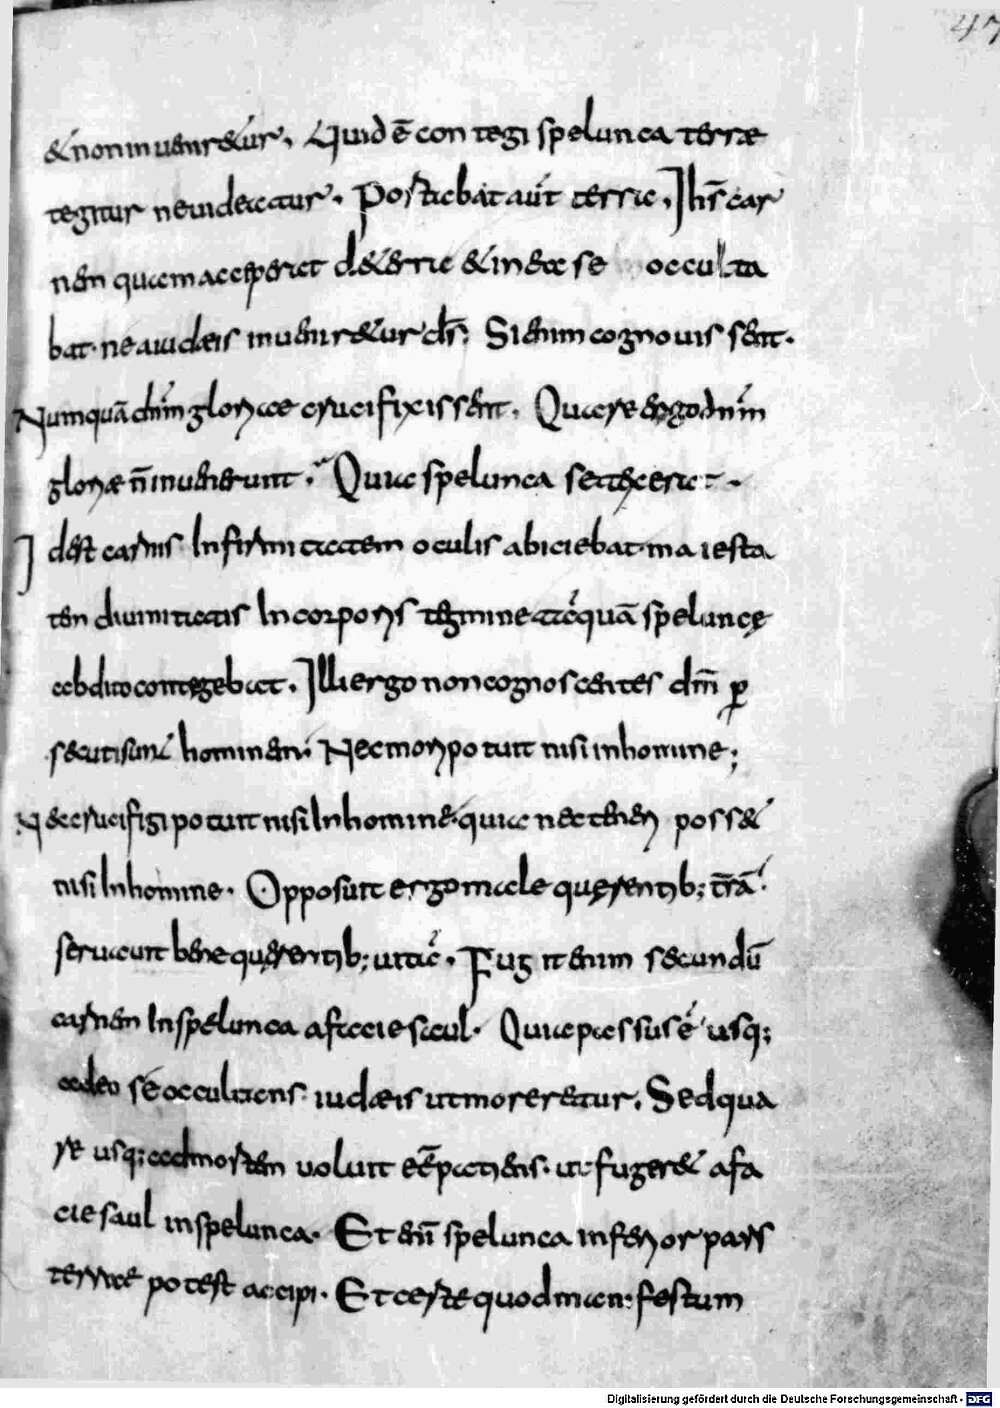 47
& non inuenir&ur. Quid ē con tegi spelunca terrae
tegitur ne uideatur. Portabat aūt terra. Ihs̄ car
nem quam acceperat de terra & in ea se occulta
bat. ne a iudaeis inuenir&ur ds̄. Si enim cognouissent.
Numquā dn̄m gloriae crucifixissent. Quare ergo dn̄m
gloriae n̄ inuenerunt. Quia spelunca se texerat.
Id est carnis Infirmitatem oculis abiciebat. maiesta
tem diuinitatis In corporis tegmine tāquā speluncę
abdito contegebat. Illi ergo non cognoscentes dn̄m per
secuti sunt hominem. Nec mori potuit nisi in homine;
Nec crucifigi potuit nisi In homine. quia nec teneri poss&
nisi In homine. Opposuit ergo male quęrentib; trā.
seruauit bene quęrentib; uitā. Fugit enim secundū
carnem In spelunca a facie saul. Quia passus ē usq;
adeo se occultans iudaeis ut moreretur. Sed qua
re usq; ad mortem uoluit eē patiens. ut fuger& a fa
cie saul in spelunca. Et enī spelunca inferior pars
terrae potest accipi. Et certe quod manifestum
Digitalisierung gefördert durch die Deutsche Forschungsgemeinschaft - DFG